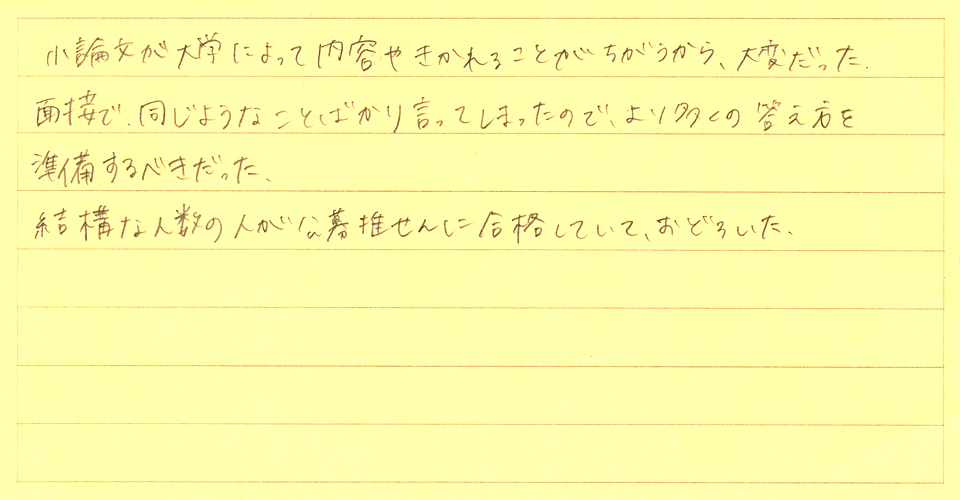 小論文が大学によって内容やきかれることがちがうから、大変だった.
面接で、同じようなことばかり言ってしまったので、より多くの答え方を
準備するべきだった、
結構な人数の人が公募推せんに合格していて、おどろいた、